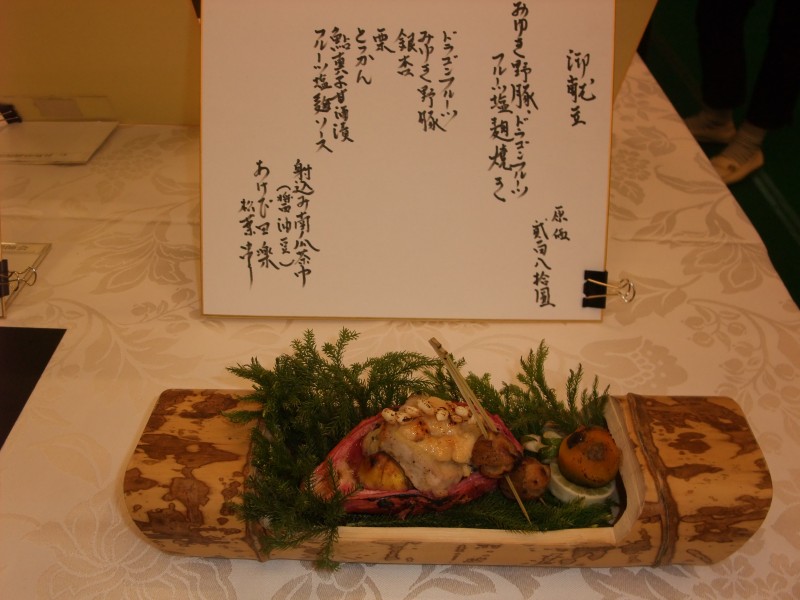 御献立
みゆき野豚、ドラゴンフルーツ
フルーツ塩麹焼き
原価
弐百八拾圓
ドラゴンフルーツ
みゆき野豚
銀杏
栗
とっかん
鮎真子甘酒漬
フルーツ塩麹ソース
射込み南瓜茶巾
（醤油豆）
あけび田楽
松葉串